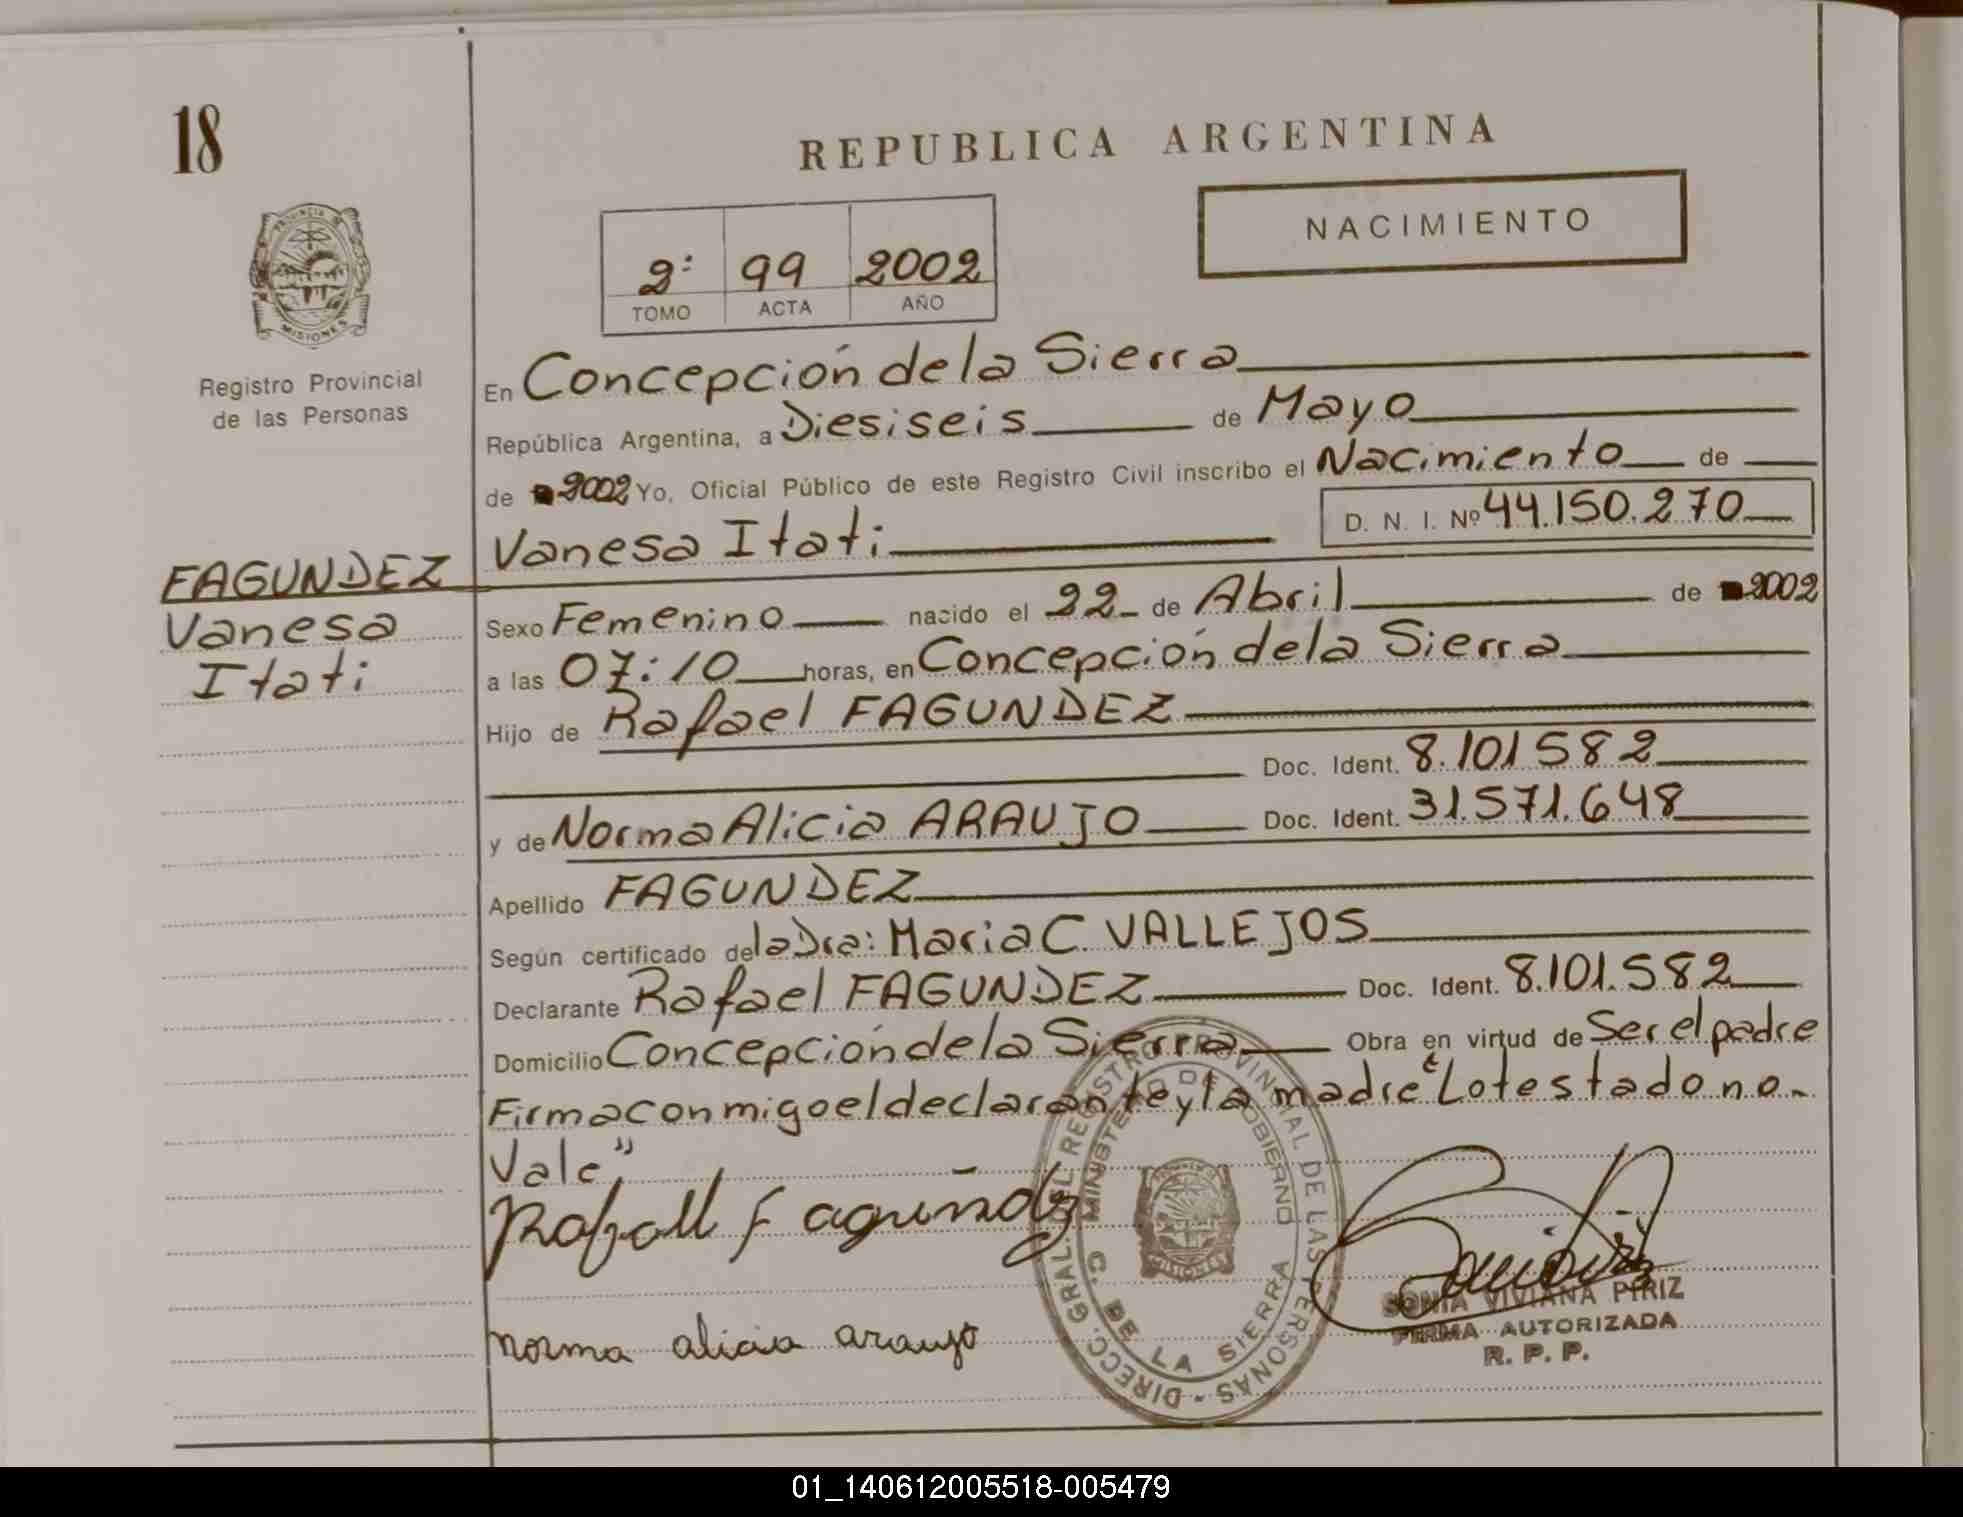 18
REPUBLICA ARGENTINA
NACIMIENTO
2º 99 2002
TOMO ACTA AÑO
PROVINCIA
MISIONES
Registro Provincial
de las Personas
FAGUNDEZ
Vanesa
Itati
En Concepción de la Sierra
República Argentina, a Diesiseis de Mayo
de 2002 Yo, Oficial Público de este Registro Civil inscribo el Nacimiento de
Vanesa Itati D. N. I. Nº 44.150.270
Sexo Femenino nacido el 22 de Abril de 2002
a las 07:10 horas, en Concepción de la Sierra
Hijo de Rafael FAGUNDEZ
Doc. Ident. 8.101582
y de Norma Alicia ARAUJO Doc. Ident. 31.571.648
Apellido FAGUNDEZ
Según certificado de la Dra: Maria C. VALLEJOS
Declarante Rafael FAGUNDEZ Doc. Ident. 8.101.582
Domicilio Concepción de la Sierra Obra en virtud de Ser el padre
Firma conmigo el declarante y la madre "Lo testado no
Vale"
norma alicia araujo
DIRECC. GRAL. DEL REGISTRO PROVINCIAL DE LAS PERSONAS -
MINISTERIO DE GOBIERNO
C. DE LA SIERRA
MISIONES
SONIA VIVIANA PIRIZ
FIRMA AUTORIZADA
R. P. P.
01_140612005518-005479